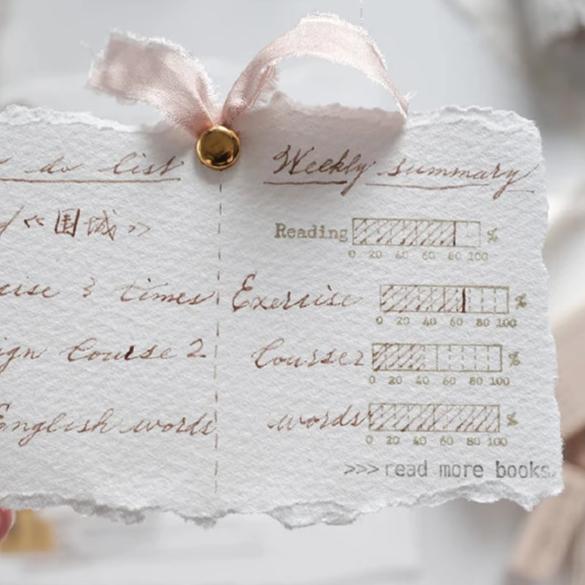 do list
《围城》
cise 3 times
ign Course 2
English words
Weekly summary
Reading %
0 20 40 60 80 100
Exercise %
0 20 40 60 80 100
Course2 %
0 20 40 60 80 100
words %
0 20 40 60 80 100
>>> read more books.